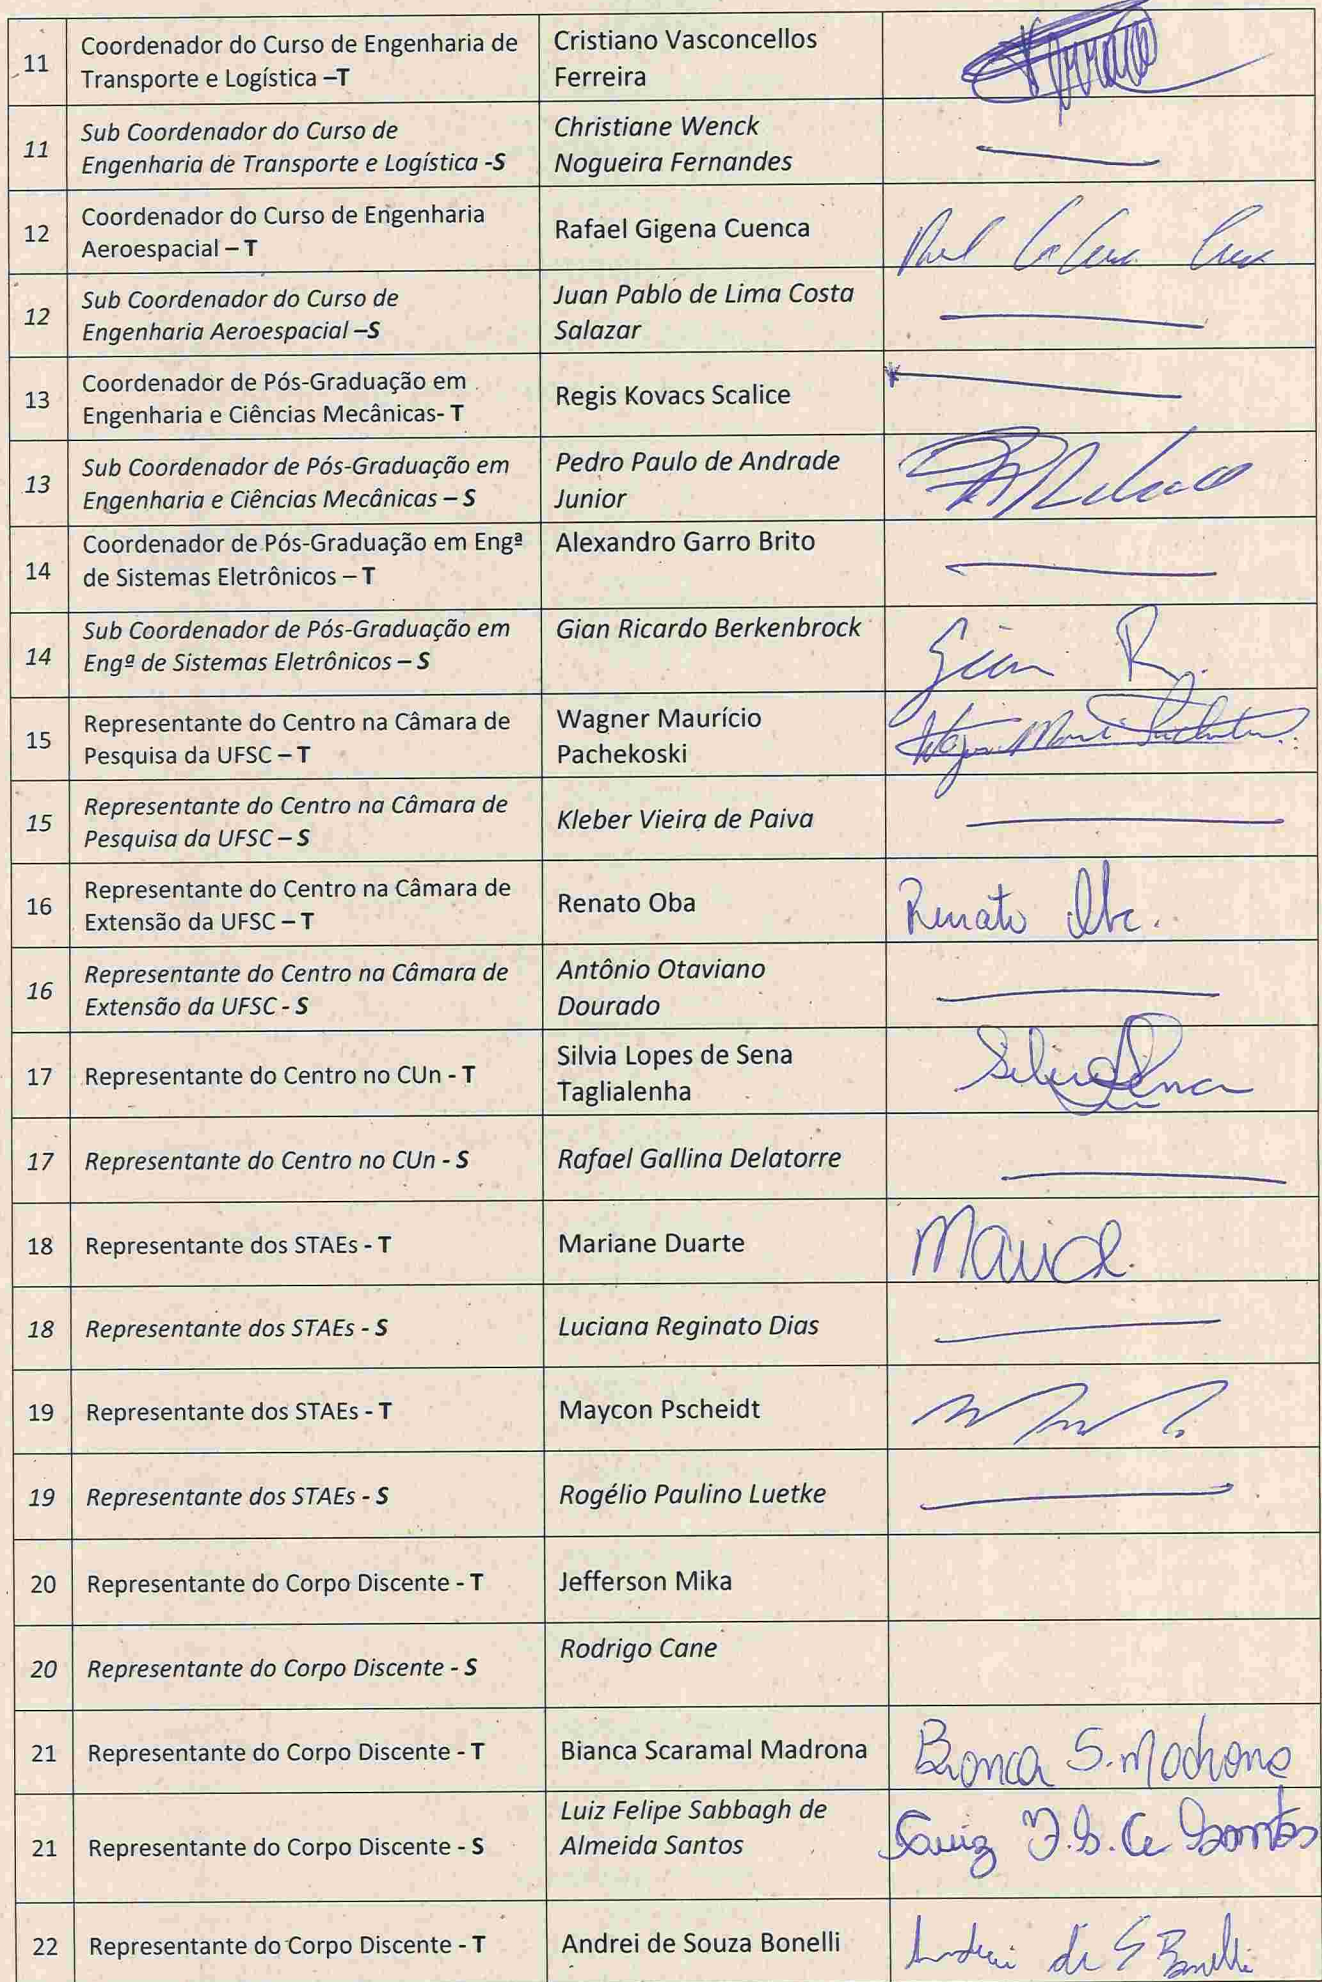 11
Coordenador do Curso de Engenharia de
Transporte e Logística –T
Cristiano Vasconcellos
Ferreira
11
Sub Coordenador do Curso de
Engenharia de Transporte e Logística -S
Christiane Wenck
Nogueira Fernandes
12
Coordenador do Curso de Engenharia
Aeroespacial – T
Rafael Gigena Cuenca
12
Sub Coordenador do Curso de
Engenharia Aeroespacial –S
Juan Pablo de Lima Costa
Salazar
13
Coordenador de Pós-Graduação em
Engenharia e Ciências Mecânicas- T
Regis Kovacs Scalice
13
Sub Coordenador de Pós-Graduação em
Engenharia e Ciências Mecânicas – S
Pedro Paulo de Andrade
Junior
14
Coordenador de Pós-Graduação em Engª
de Sistemas Eletrônicos – T
Alexandro Garro Brito
14
Sub Coordenador de Pós-Graduação em
Engª de Sistemas Eletrônicos – S
Gian Ricardo Berkenbrock
Gian R.
15
Representante do Centro na Câmara de
Pesquisa da UFSC – T
Wagner Maurício
Pachekoski
15
Representante do Centro na Câmara de
Pesquisa da UFSC – S
Kleber Vieira de Paiva
16
Representante do Centro na Câmara de
Extensão da UFSC – T
Renato Oba
Renato Oba.
16
Representante do Centro na Câmara de
Extensão da UFSC - S
Antônio Otaviano
Dourado
17
Representante do Centro no CUn - T
Silvia Lopes de Sena
Taglialenha
17
Representante do Centro no CUn - S
Rafael Gallina Delatorre
18
Representante dos STAEs - T
Mariane Duarte
18
Representante dos STAEs - S
Luciana Reginato Dias
19
Representante dos STAEs - T
Maycon Pscheidt
19
Representante dos STAEs - S
Rogélio Paulino Luetke
20
Representante do Corpo Discente - T
Jefferson Mika
20
Representante do Corpo Discente - S
Rodrigo Cane
21
Representante do Corpo Discente - T
Bianca Scaramal Madrona
Bianca S. Madrona
21
Representante do Corpo Discente - S
Luiz Felipe Sabbagh de
Almeida Santos
Luiz F. S. de A. Santos
22
Representante do Corpo Discente - T
Andrei de Souza Bonelli
Andrei de S Bonelli